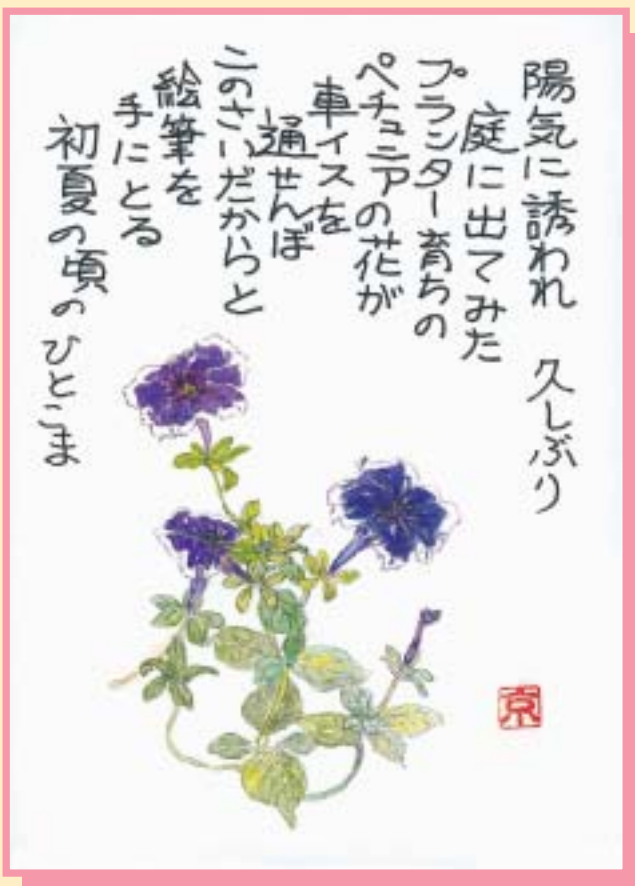 陽気に誘われ 久しぶり
庭に出てみた
プランター育ちの
ペチュニアの花が
車イスを
通せんぼ
このさいだからと
絵筆を
手にとる
初夏の頃のひとこま
京